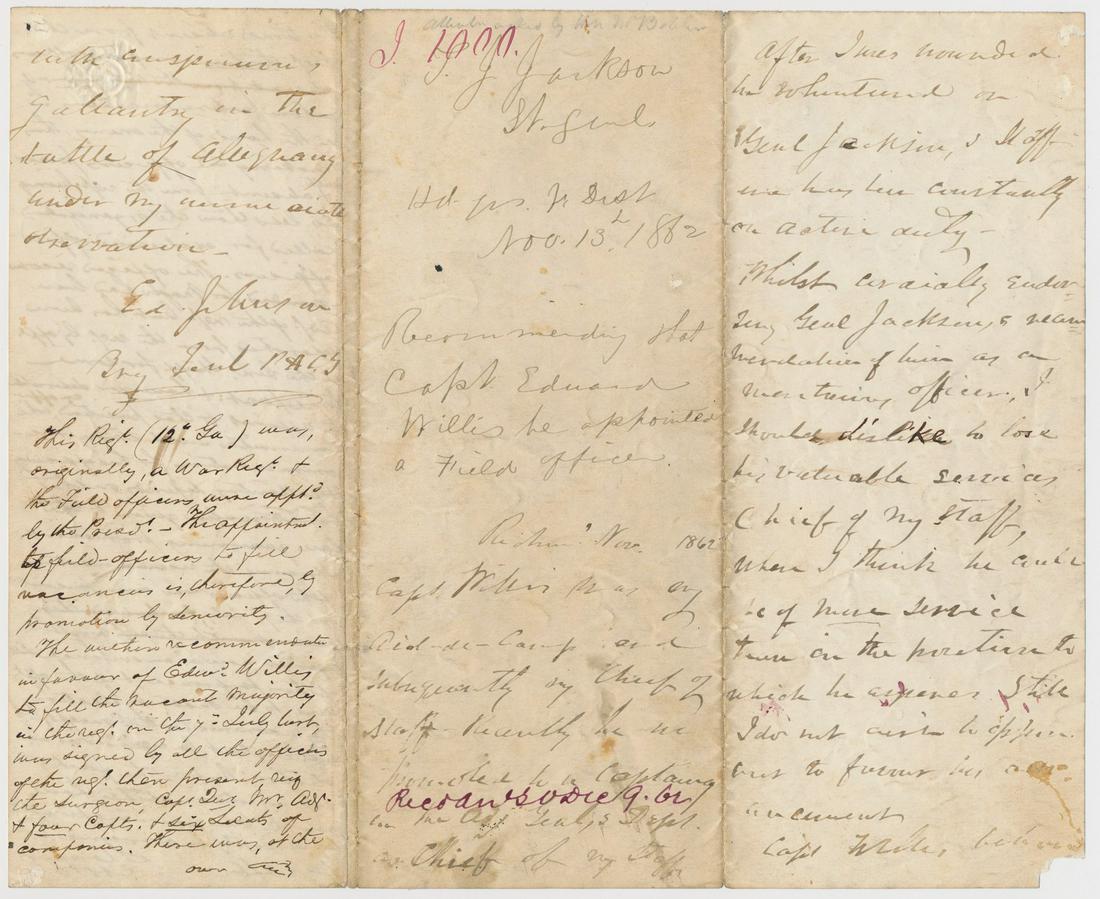 J. 1000.
T. J. Jackson
Lt. Genl.
Hd. qrs. V. Dist
Nov. 13th 1862
Recommending that
Capt. Edward
Willis be appointed
a Field officer.
Richm. Nov. 1862
Capt. Willis was my
Aid-de-Camp and
subsequently my Chief of
Staff. Recently he was
promoted to a Captaincy
Dec 9. 62
in the Genl's Dept.
as Chief of my Staff
After I was wounded
he volunteered on
Genl Jackson's Staff
and has been constantly
on active duty -
Whilst cordially endor-
sing Genl Jackson's recom
mendation of him as a
meritorious officer, I
should dislike to lose
his valuable services
Chief of my staff,
when I think he could
be of more service
than in the position to
which he aspires. Still
I do not wish to appear
averse to favour his adv-
ancement
Capt Willis, behaved
with conspicuous
gallantry in the
battle of Alleghany
under my immediate
observation -
Ed. Johnson
Brig Genl P.A.C.S
This Regt. (12th Ga) was,
originally, a War Regt. &
the Field officers were appt.d
by the Presdt. - The appointmt.
of field-officers to fill
vacancies is, therefore, by
promotion by seniority.
The within recommendation
in favour of Edwd Willis
to fill the vacant Majority
in the regt. on the 7th July last,
was signed by all the officers
of the regt. then present, viz
the Surgeon, Capt. Qr. Mr., Adjt.
& four Capts. & six Lieuts of
companies. There was, at the
over